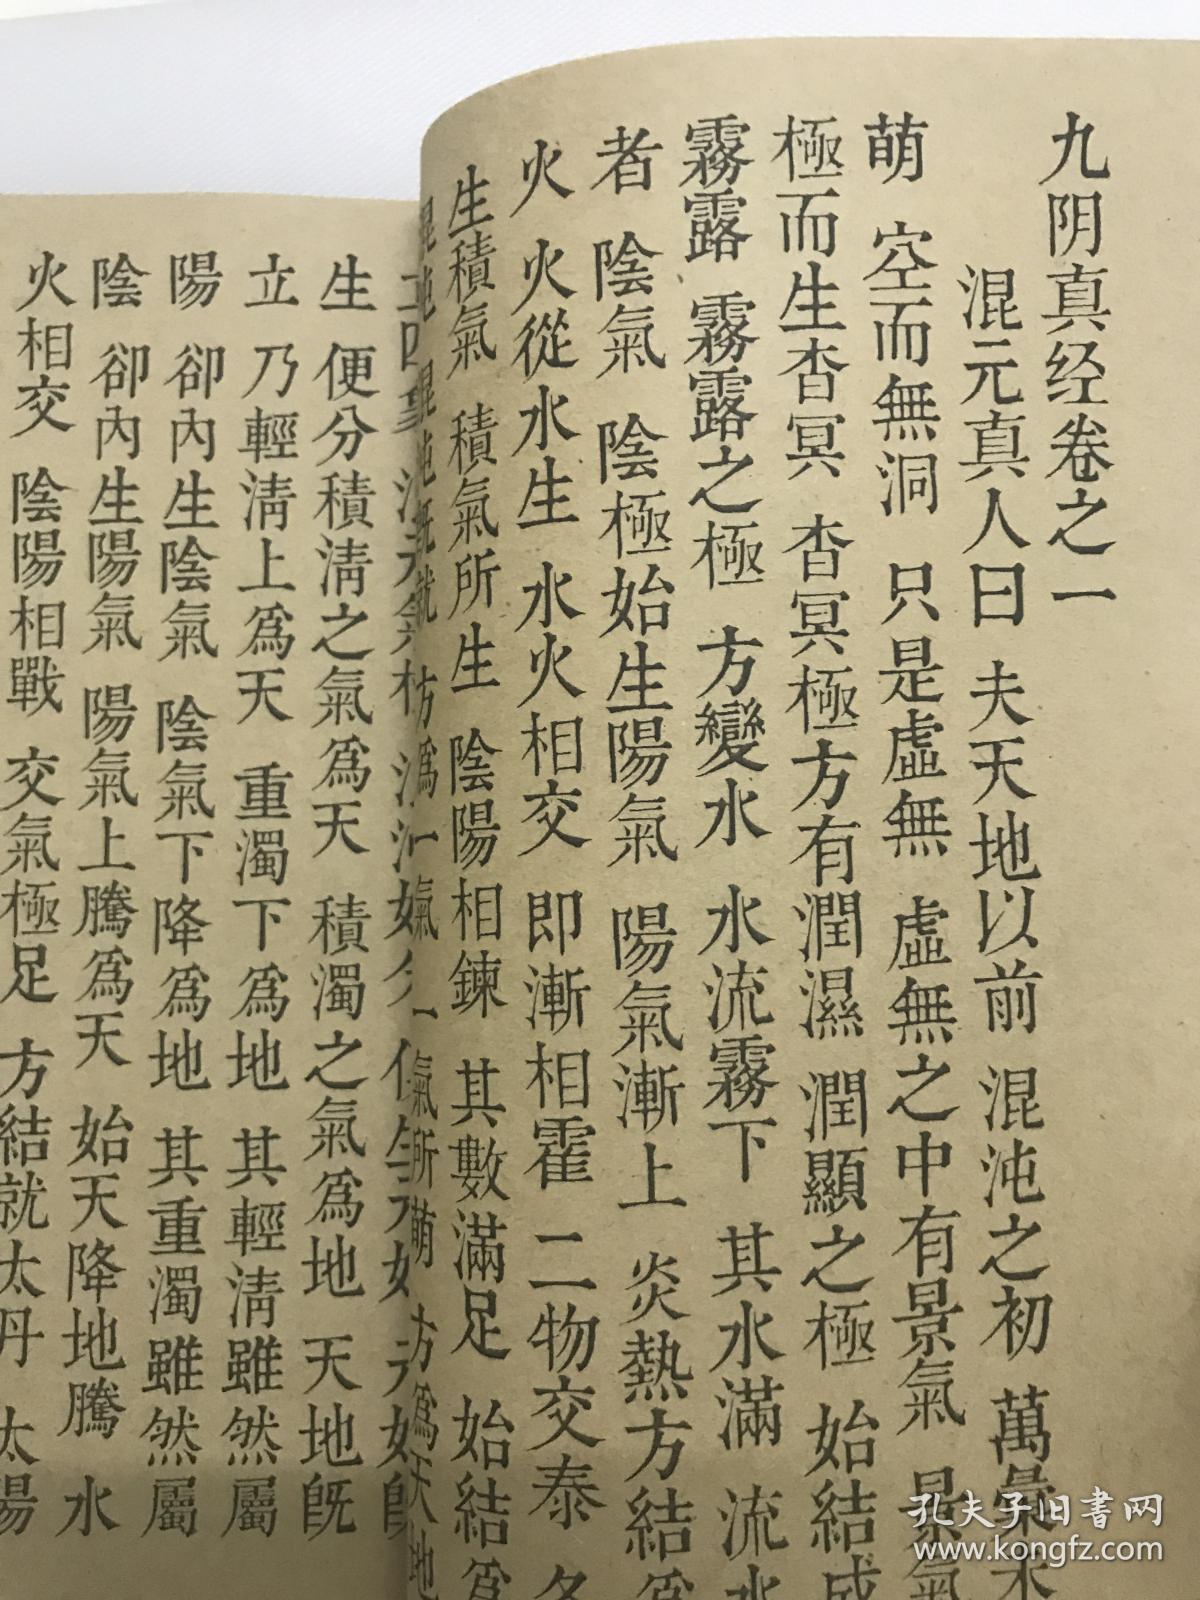 九阴真经卷之一
混元真人曰 夫天地以前 混沌之初 萬彙未
萌 空而無洞 只是虛無 虛無之中有景氣 景氣
極而生杳冥 杳冥極方有潤濕 潤顯之極 始結成
霧露 霧露之極 方變水 水流霧下 其水滿 流水
者 陰氣 陰極始生陽氣 陽氣漸上 炎熱方結爲
火 火從水生 水火相交 即漸相霍 二物交泰
生積氣 積氣所生 陰陽相鍊 其數滿足 始結爲
混沌 混沌旣就 氣所萌 方爲天地
生 便分積淸之氣爲天 積濁之氣爲地 天地旣
立 乃輕淸上爲天 重濁下爲地 其輕淸雖然屬
陽 卻內生陰氣 陰氣下降爲地 其重濁雖然屬
陰 卻內生陽氣 陽氣上騰爲天 始天降地騰 水
火相交 陰陽相戰 交氣極足 方結就太丹 太陽
孔夫子旧书网
www.kongfz.com